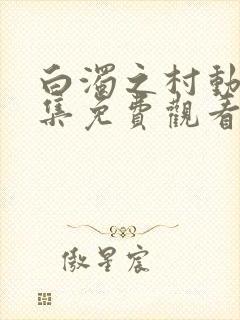 白濁之村動
集免費觀看
傲星宸